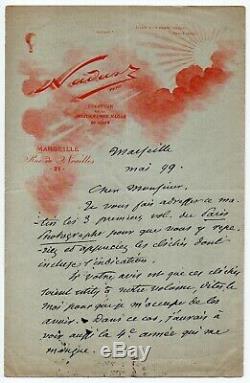 Nadar
FONDATEUR
PHOTOGRAPHIE NADAR
MARSEILLE
Rue de Noailles
21
Marseille
mai 99.
Cher Monsieur,
Je vous fais adresser ce ma-
tin les 3 premiers vol. de Paris
Photographe pour que vous y repé-
riez et appréciez les clichés dont
inclus l'indication.
Si votre avis est que ces clichés
soient utiles à notre volume, dites le
moi pour que je m'occupe de les
avoir. Dans ce cas, j'aurais à
voir aussi la 4e année qui me
manque.